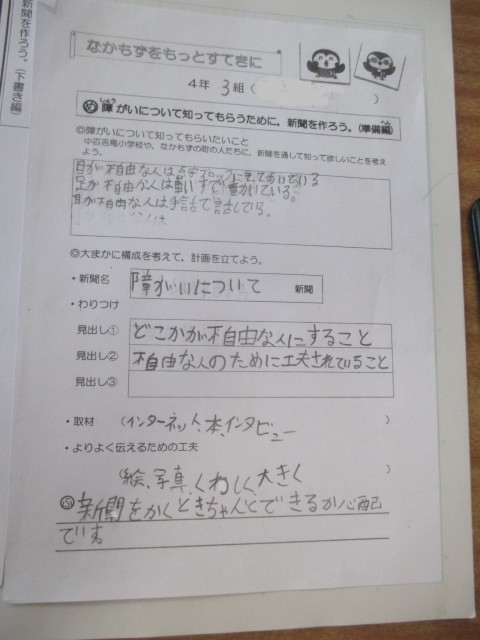 新聞を作ろう。(下書き編)
なかもずをもっとすてきに
4年 3組 ( )
しょう
へん
め 障がいについて知ってもらうために、新聞を作ろう。(準備編)
◎障がいについて知ってもらいたいこと
中百舌鳥小学校や、なかもずの町の人たちに、新聞を通して知って欲しいことを考え
よう。
目が不自由な人は点字ブロックに
足が不自由な人は車いすで動いている。
耳が不自由な人は手話で話している。
◎大まかに構成を考えて、計画を立てよう。
・新聞名 障がいについて 新聞
・わりつけ
見出し① どこかが不自由な人にすること
見出し② 不自由な人のために工夫されていること
見出し③
・取材 (インターネット、本、インタビュー )
・よりよく伝えるための工夫
(絵、写真、くわしく、大きく )
ふ 新聞をかくときちゃんとできるか心配
です。